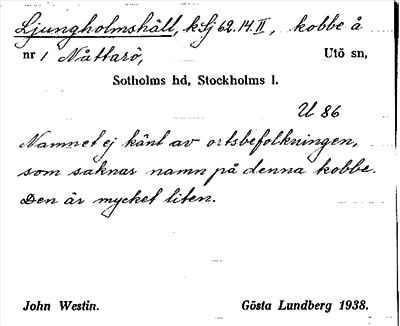 Ljungholmshäll, k Sj 62.14.II, kobbe å
nr 1 Nåttarö, Utö sn,
Sotholms hd, Stockholms l.
U 86
Namnet ej känt av ortsbefolkningen,
som saknar namn på denna kobbe.
Den är mycket liten.
John Westin. Gösta Lundberg 1938.